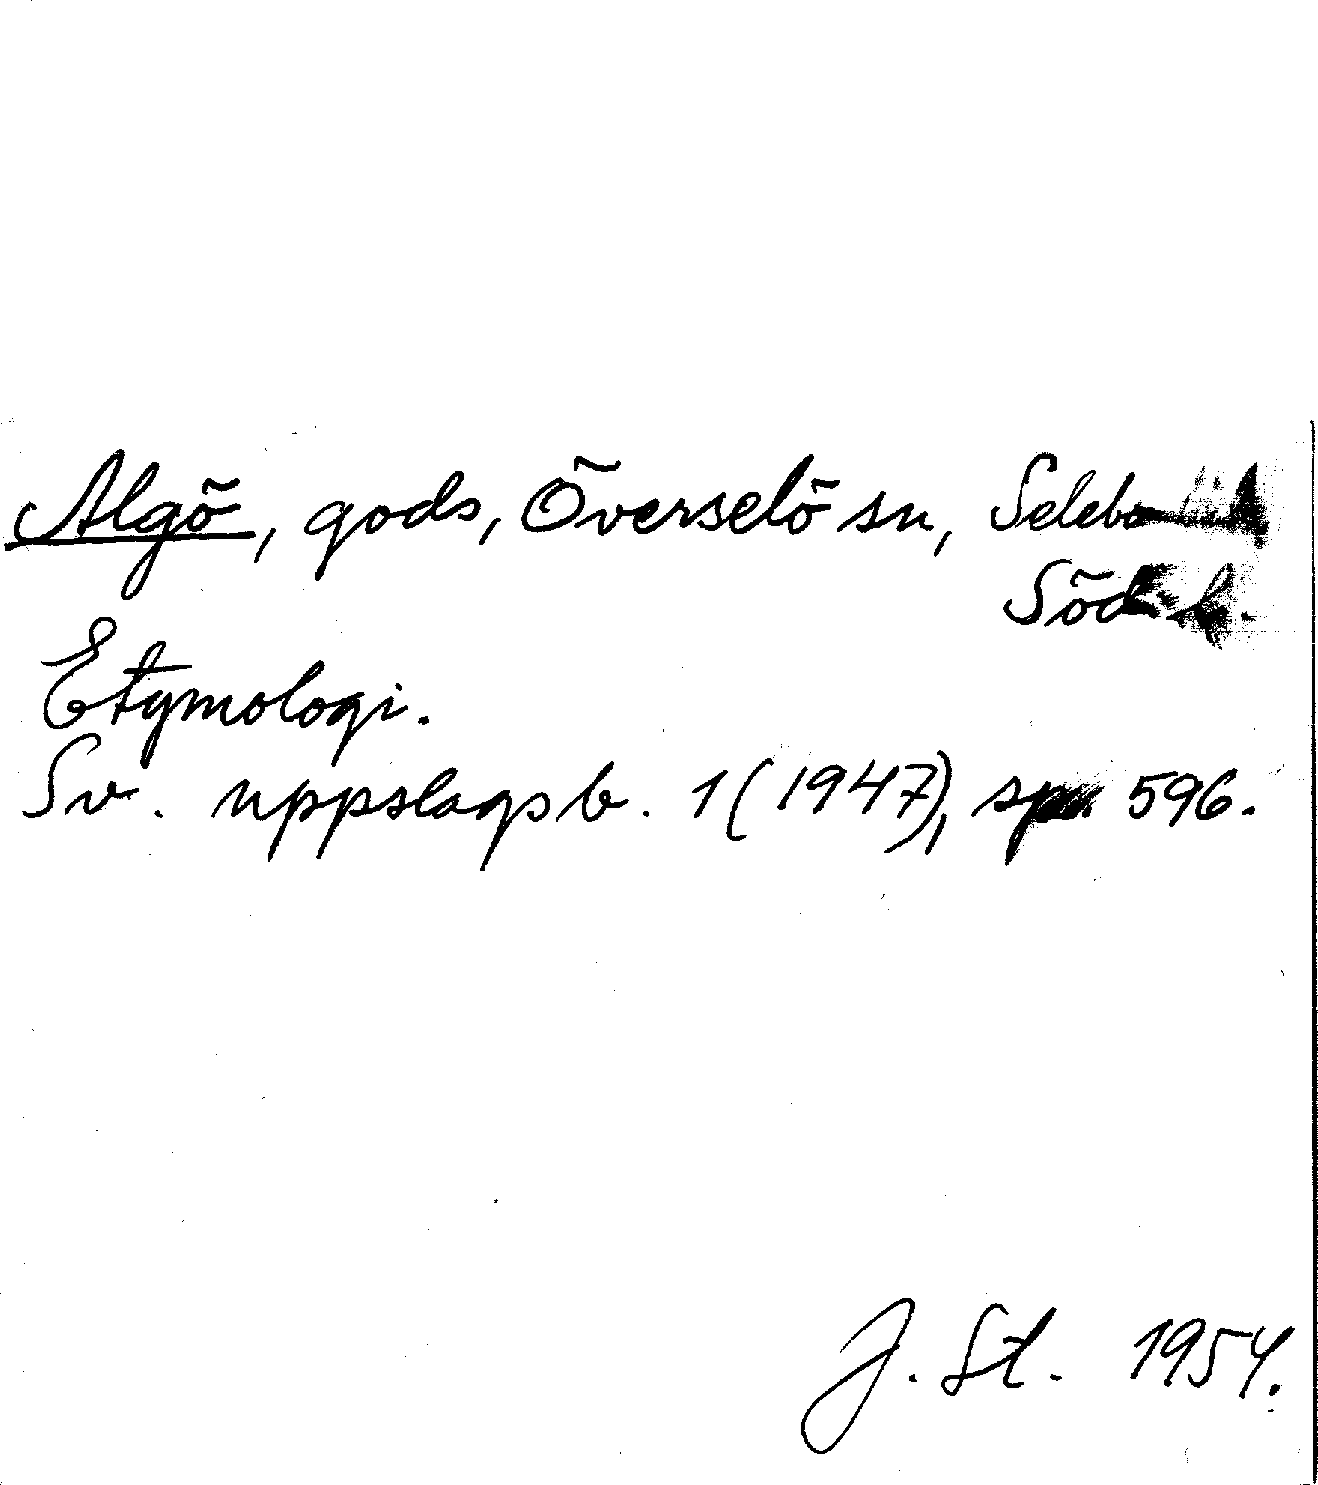 Algö, gods, Överselö sn, Selebo
Söd
Etymologi.
Sv. uppslagsb. 1 (1947), sp. 596.
J. St. 1954.